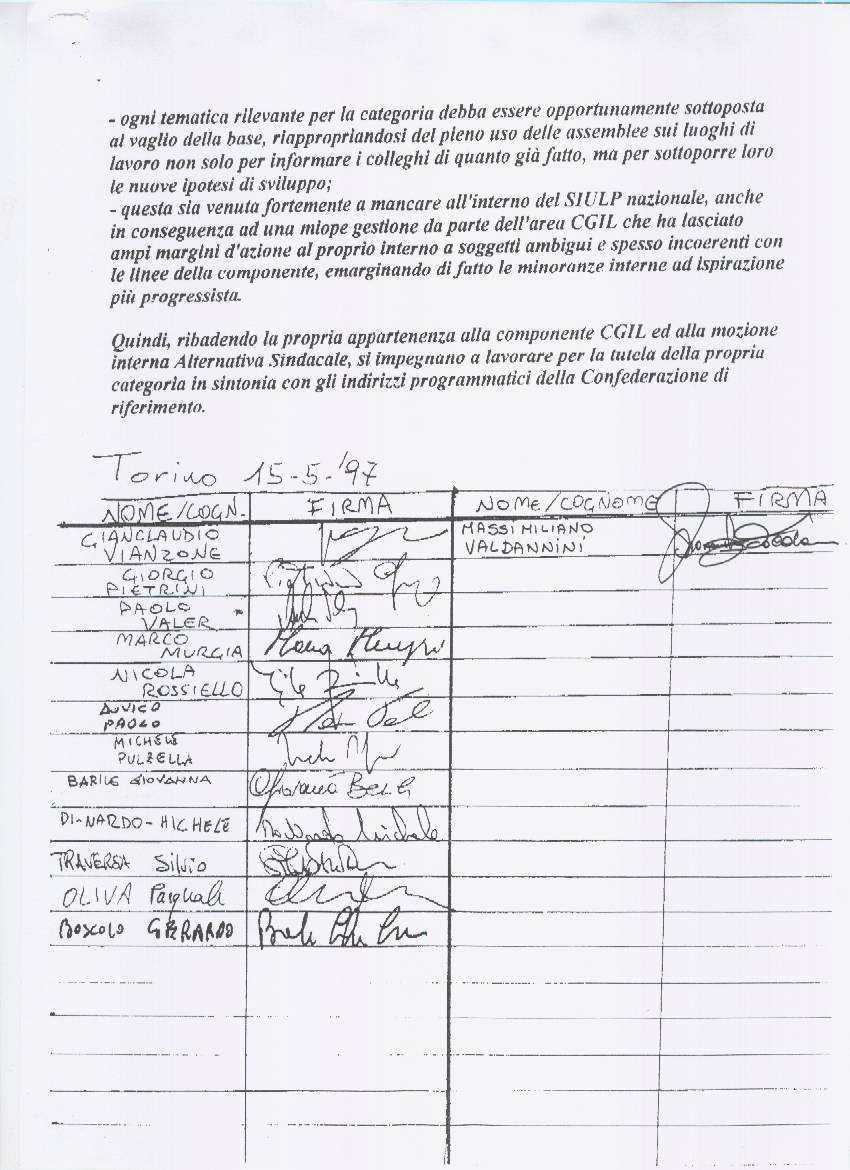 - ogni tematica rilevante per la categoria debba essere opportunamente sottoposta
al vaglio della base, riappropriandosi del pieno uso delle assemblee sui luoghi di
lavoro non solo per informare i colleghi di quanto già fatto, ma per sottoporre loro
le nuove ipotesi di sviluppo;
- questa sia venuta fortemente a mancare all'interno del SIULP nazionale, anche
in conseguenza ad una miope gestione da parte dell'area CGIL che ha lasciato
ampi margini d'azione al proprio interno a soggetti ambigui e spesso incoerenti con
le linee della componente, emarginando di fatto le minoranze interne ad ispirazione
più progressista.
Quindi, ribadendo la propria appartenenza alla componente CGIL ed alla mozione
interna Alternativa Sindacale, si impegnano a lavorare per la tutela della propria
categoria in sintonia con gli indirizzi programmatici della Confederazione di
riferimento.
Torino 15-5-'97
NOME/COGN. FIRMA NOME/COGNOME FIRMA
GIANCLAUDIO
VIANZONE
MASSIMILIANO
VALDANNINI
GIORGIO
PIETRINI
PAOLO
VALER
MARCO
MURGIA
NICOLA
ROSSIELLO
AUVICO
PAOLO
MICHELE
PULZELLA
BARILE GIOVANNA
DI-NARDO-MICHELE
TRAVERSA Silvio
OLIVA Pasquale
BOSCOLO GERARDO